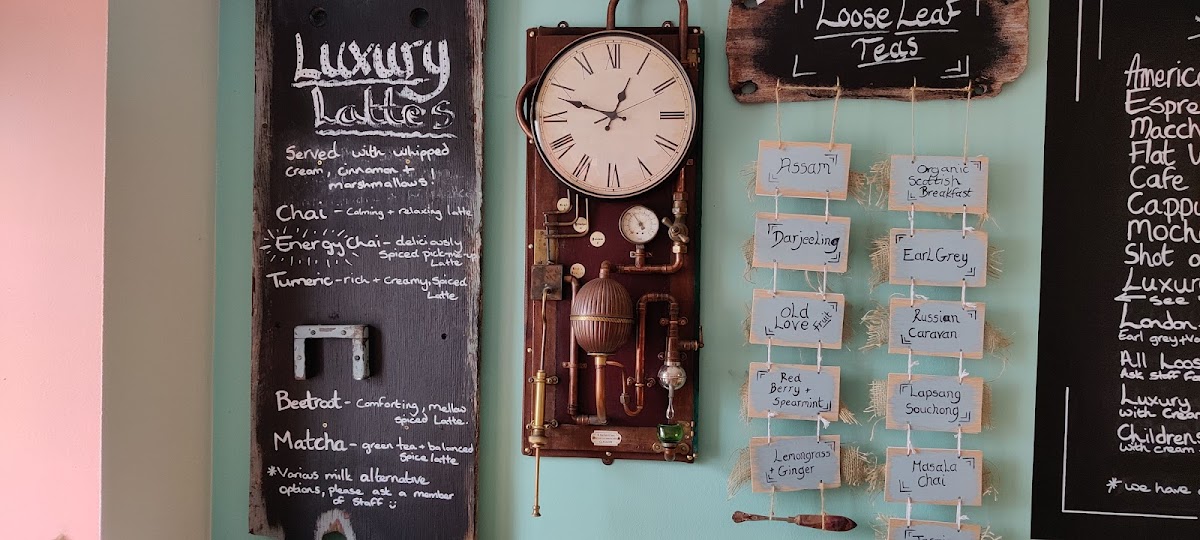 Luxury
Lattes
Served with whipped
cream, cinnamon +
marshmallows!
Chai - Calming + relaxing latte
Energy Chai - deliciously
Spiced pick-me-up
Latte
Tumeric - rich + creamy, Spiced
Latte
Beetroot - Comforting, mellow
Spiced Latte.
Matcha - green tea + balanced
Spice latte
*Various milk alternative
options, please ask a member
of staff
XII
I
II
III
IIII
V
VI
VII
VIII
IX
X
XI
Loose Leaf
Teas
Assam
Darjeeling
Old
Love fruit
Red
Berry +
Spearmint
Lemongrass
+ Ginger
Organic
Scottish
Breakfast
Earl Grey
Russian
Caravan
Lapsang
Souchong
Masala
Chai
Americ
Espre
Macch
Flat
Cafe
Capp
Moch
Shot o
Luxur
see
London
Earl grey + Va
All Loos
Ask staff fo
Luxury
with crea
Childrens
with cream
*we have